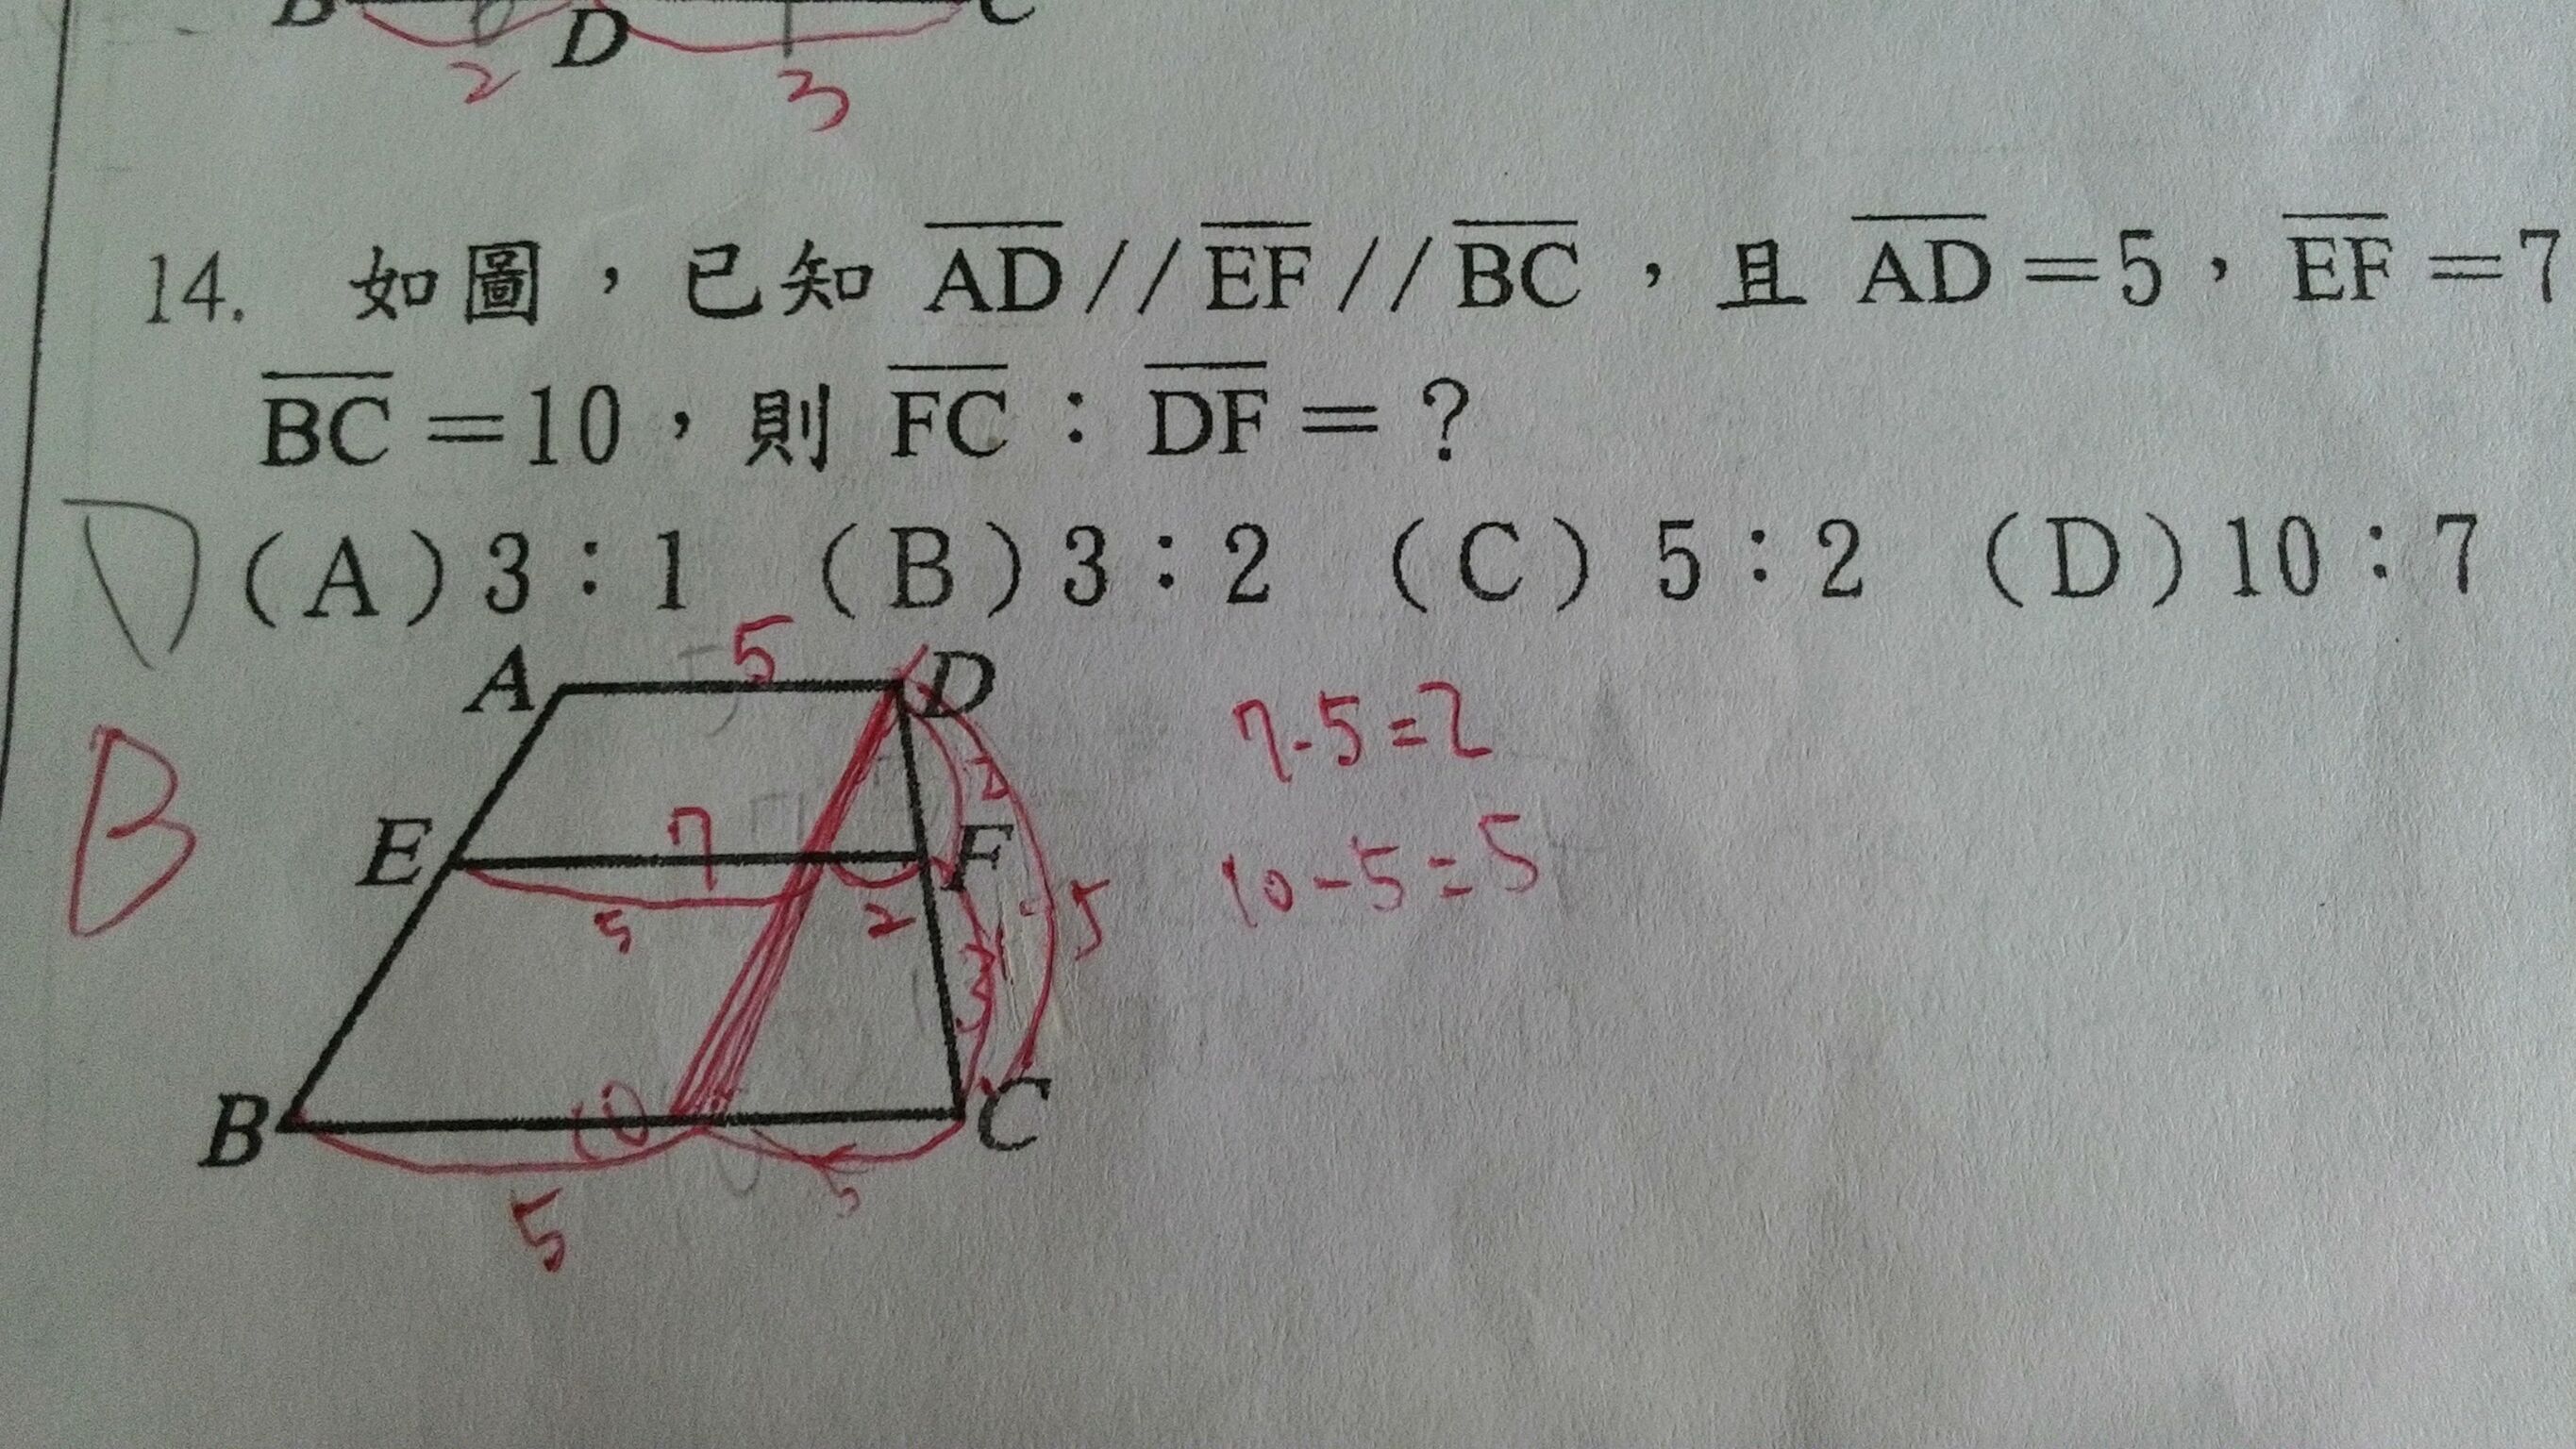 B D C
2 3
14. 如圖，已知 AD // EF // BC，且 AD＝5，EF＝7
BC＝10，則 FC：DF＝？
D (A) 3：1 (B) 3：2 (C) 5：2 (D) 10：7
5
A D
7-5=2
2
E 7 F
B
10-5=5
5 2 5
3
B 10 C
5 5